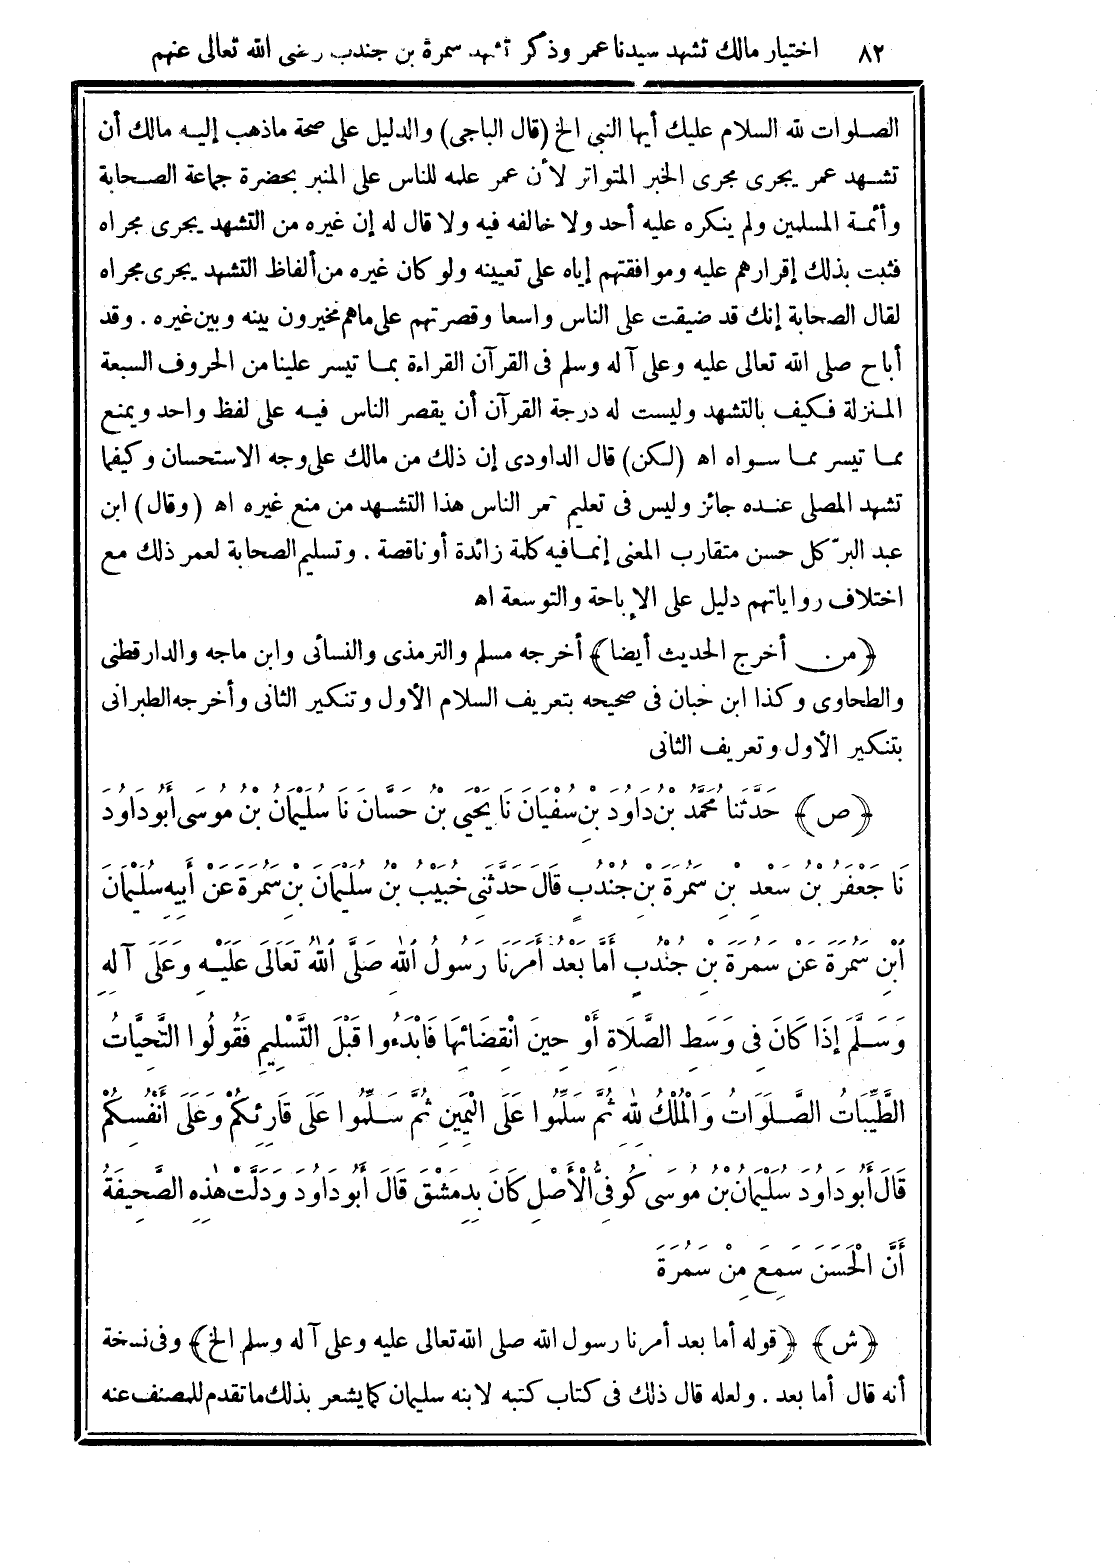 ٨٢ اختيار مالك تشهد سيدنا عمر وذكر تشهد سمرة بن جندب رضى الله تعالى عنهم
الصلوات لله السلام عليك أيها النبى الخ (قال الباجى) والدليل على صحة ماذهب إليه مالك أن
تشهد عمر يجرى مجرى الخبر المتواتر لأن عمر علمه للناس على المنبر بحضرة جماعة الصحابة
وأئمة المسلمين ولم ينكره عليه أحد ولا خالفه فيه ولا قال له إن غيره من التشهد يجرى مجراه
فثبت بذلك إقرارهم عليه وموافقتهم إياه على تعيينه ولو كان غيره من ألفاظ التشهد يجرى مجراه
لقال الصحابة إنك قد ضيقت على الناس واسعا وقصرتهم على ماهم مخيرون بينه وبين غيره . وقد
أباح صلى الله تعالى عليه وعلى آله وسلم فى القرآن القراءة بما تيسر علينا من الحروف السبعة
المنزلة فكيف بالتشهد وليست له درجة القرآن أن يقصر الناس فيه على لفظ واحد ويمنع
مما تيسر مما سواه اه (لكن) قال الداودى إن ذلك من مالك على وجه الاستحسان وكيفما
تشهد المصلى عنده جائز وليس فى تعليم عمر الناس هذا التشهد من منع غيره اه (وقال) ابن
عبد البرّ كل حسن متقارب المعنى إنما فيه كلمة زائدة أو ناقصة . وتسليم الصحابة لعمر ذلك مع
اختلاف رواياتهم دليل على الإباحة والتوسعة اه
﴿من أخرج الحديث أيضا﴾ أخرجه مسلم والترمذى والنسائى وابن ماجه والدارقطنى
والطحاوى وكذا ابن حبان فى صحيحه بتعريف السلام الأول وتنكير الثانى وأخرجه الطبرانى
بتنكير الأول وتعريف الثانى
﴿ص﴾ حَدَّثَنَا مُحَمَّدُ بْنُ دَاوُدَ بْنِ سُفْيَانَ نَا يَحْيَى بْنُ حَسَّانَ نَا سُلَيْمَانُ بْنُ مُوسَى أَبُو دَاوُدَ
نَا جَعْفَرُ بْنُ سَعْدِ بْنِ سَمُرَةَ بْنِ جُنْدُبٍ قَالَ حَدَّثَنِى خُبَيْبُ بْنُ سُلَيْمَانَ بْنِ سَمُرَةَ عَنْ أَبِيهِ سُلَيْمَانَ
ٱبْنِ سَمُرَةَ عَنْ سَمُرَةَ بْنِ جُنْدُبٍ أَمَّا بَعْدُ أَمَرَنَا رَسُولُ ٱللهِ صَلَّى ٱللهُ تَعَالَى عَلَيْهِ وَعَلَى آلِهِ
وَسَلَّمَ إِذَا كَانَ فِى وَسَطِ الصَّلَاةِ أَوْ حِينَ انْقِضَائِهَا فَابْدَءُوا قَبْلَ التَّسْلِيمِ فَقُولُوا التَّحِيَّاتُ
الطَّيِّبَاتُ الصَّلَوَاتُ وَالْمُلْكُ لِلهِ ثُمَّ سَلِّمُوا عَلَى الْيَمِينِ ثُمَّ سَلِّمُوا عَلَى قَارِئِكُمْ وَعَلَى أَنْفُسِكُمْ
قَالَ أَبُو دَاوُدَ سُلَيْمَانُ بْنُ مُوسَى كُوفِىُّ الْأَصْلِ كَانَ بِدِمَشْقَ قَالَ أَبُو دَاوُدَ وَدَلَّتْ هٰذِهِ الصَّحِيفَةُ
أَنَّ الْحَسَنَ سَمِعَ مِنْ سَمُرَةَ
﴿ش﴾ ﴿قوله أما بعد أمرنا رسول الله صلى الله تعالى عليه وعلى آله وسلم الخ﴾ وفى نسخة
أنه قال أما بعد . ولعله قال ذلك فى كتاب كتبه لابنه سليمان كما يشعر بذلك ماتقدم للمصنف عنه